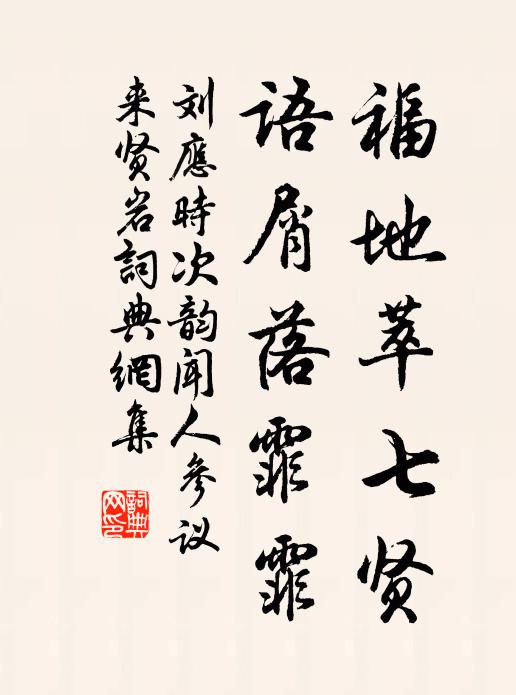 福地萃七贤
语屑落霏霏
刘應時次韵闻人參议
来贤岩詞典網集
詞典网印